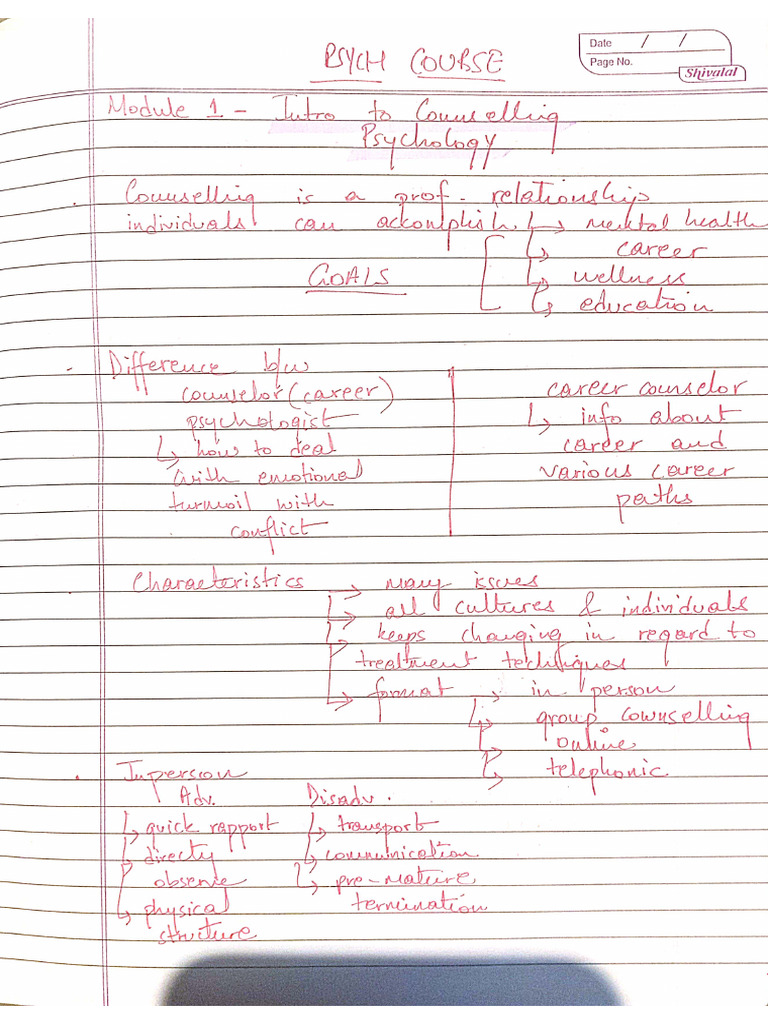 PSYCH COURSE
Date / /
Page No.
Shivalal
Module 1 - Intro to Counselling
Psychology
. Counselling is a prof. relationship
individuals can accomplish ↳ mental health
↳ career
GOALS ↳ wellness
↳ education
- Difference b/w
counselor (career)
psychologist
↳ how to deal
with emotional
turmoil with
conflict
career counselor
↳ info about
career and
various career
paths
Characteristics → many issues
↳ all cultures & individuals
↳ keeps changing in regard to
treatment techniques
↳ format → in person
↳ group counselling
↳ online
↳ telephonic
. Inperson
Adv.
↳ quick rapport
↳ directy
observe
↳ physical
structure
Disadv.
↳ transport
↳ communication
↳ pre-mature
termination